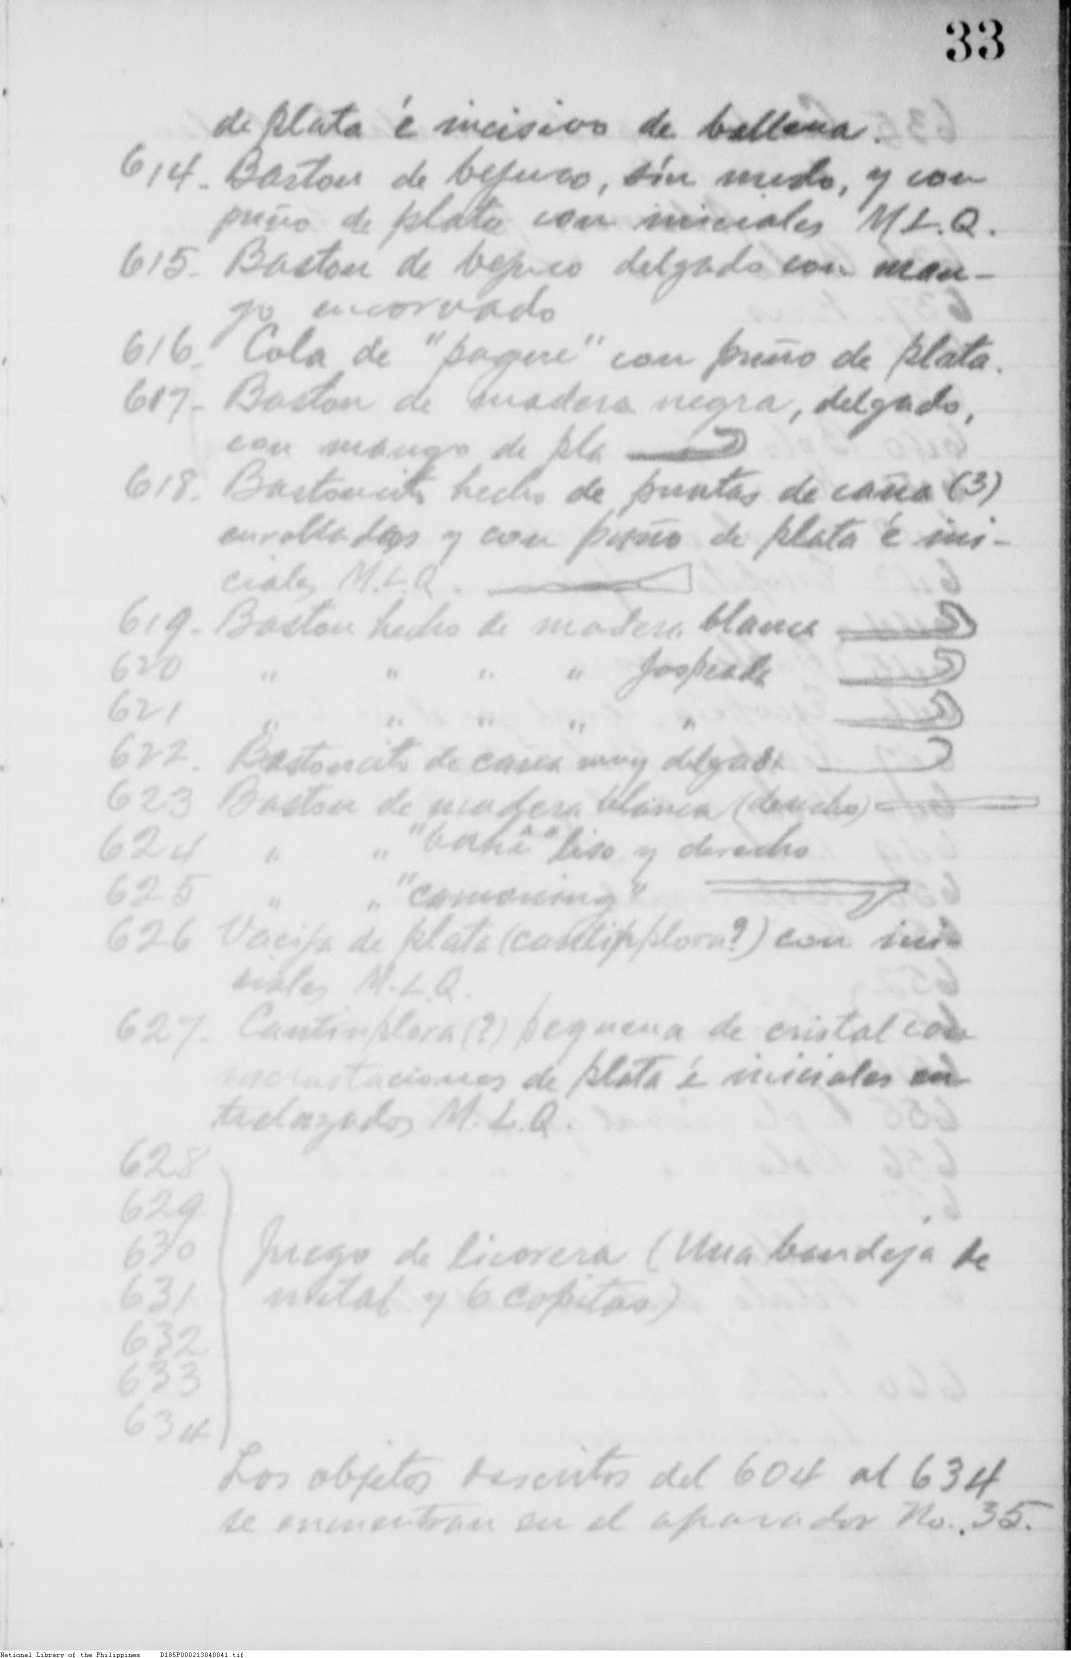 33
de plata é incisivo de ballena.
614. Baston de bejuco, sin nudo, y con
puño de plata con iniciales M.L.Q.
615. Baston de bejuco delgado con man-
go encorvado
616. Cola de "pague" con puño de plata.
617. Baston de madera negra, delgado,
con mango de pla
618. Bastoncito hecho de puntas de caña (3)
enrollados y con puño de plata é ini-
ciales M.L.Q.
619. Baston hecho de madera blanca
620 " " " " jaspeada
621 " " " " "
622. Bastoncito de caña muy delgada
623 Baston de madera blanca (derecho)
624 " " liso y derecho
625 " " "camuning"
626 Vasija de plata (cantipplora?) con ini-
ciales M.L.Q.
627. Cantinplora (?) pequena de cristal con
incrustaciones de plata é iniciales en-
trelazados M.L.Q.
628
629
630 Juego de licorera (Una bandeja de
631 metal y 6 copitas)
632
633
634
Los objetos descritos del 604 al 634
se encuentran en el aparador No. 35.
National Library of the Philippines D185P000213040041.tif